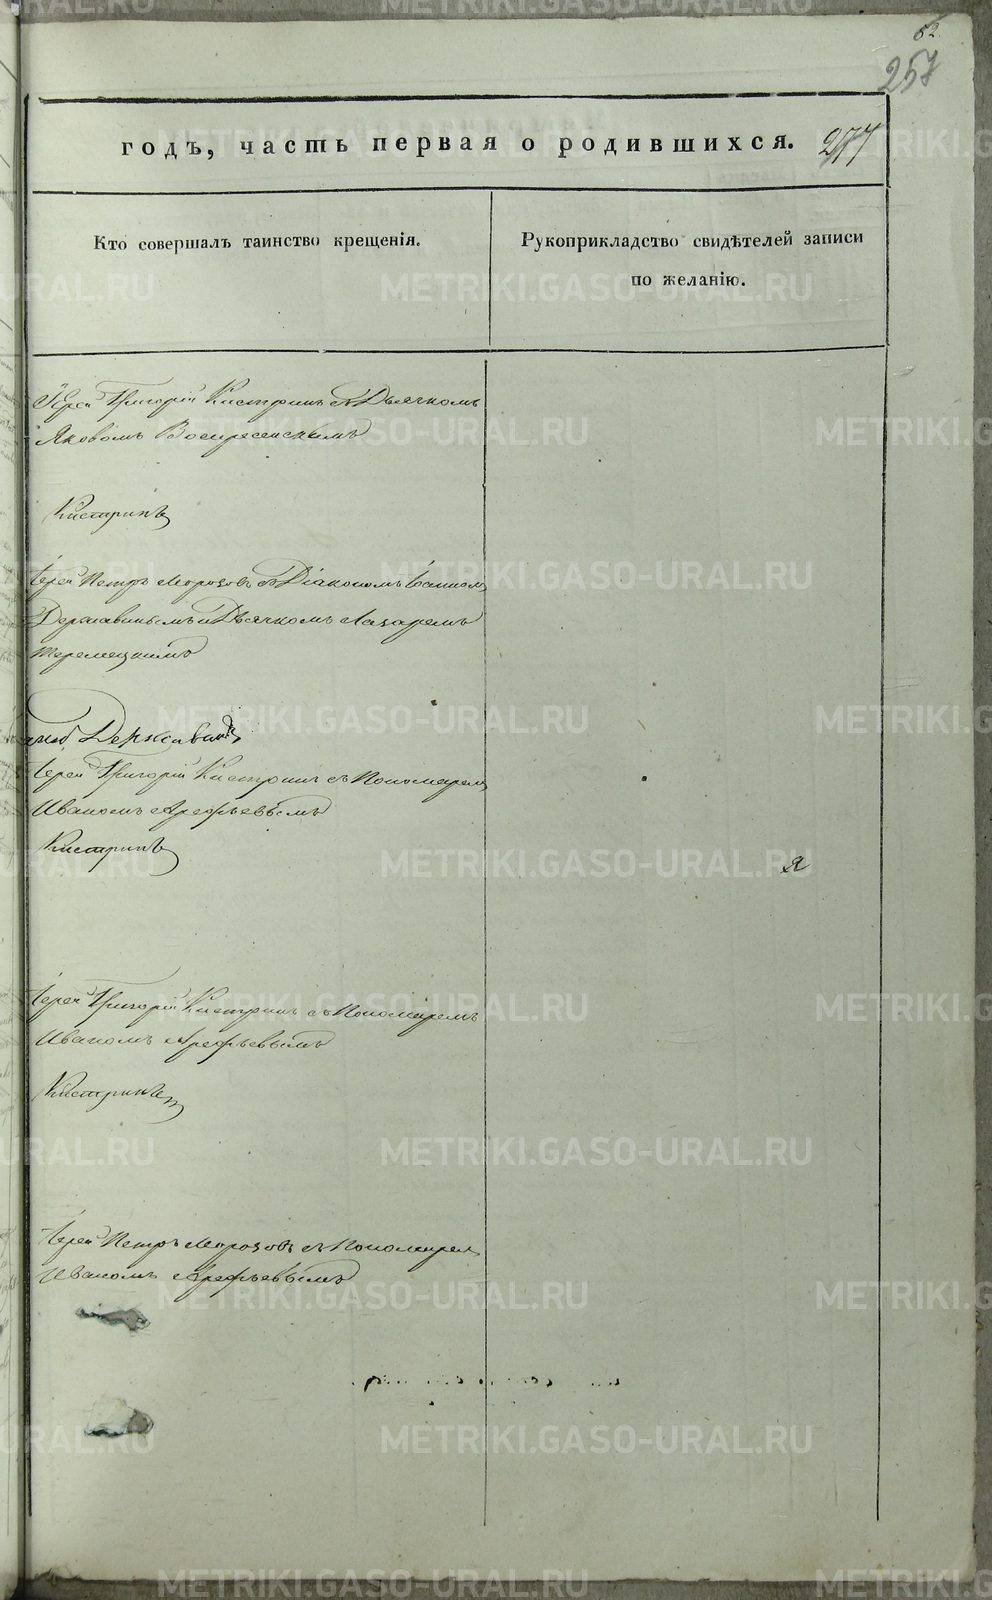 62.
257
годъ, часть первая о родившихся. 277
Кто совершалъ таинство крещенія.
Рукоприкладство свидѣтелей записи
по желанію.
Іерей Григорій Кистринъ съ Дьячкомъ
Яковомъ Воскресенскимъ
Кистринъ
Іерей Петръ Морозовъ съ Діакономъ Іоанномъ
Державинымъ и Дьячкомъ Лазаремъ
Теремецкимъ
Державинъ
Іерей Григорій Кистринъ съ Пономаремъ
Иваномъ Арефьевымъ
Кистринъ
я
Іерей Григорій Кистринъ съ Пономаремъ
Иваномъ Арефьевымъ
Кистринъ
Іерей Петръ Морозовъ съ Пономаремъ
Иваномъ Арефьевымъ
METRIKI.GASO-URAL.RU